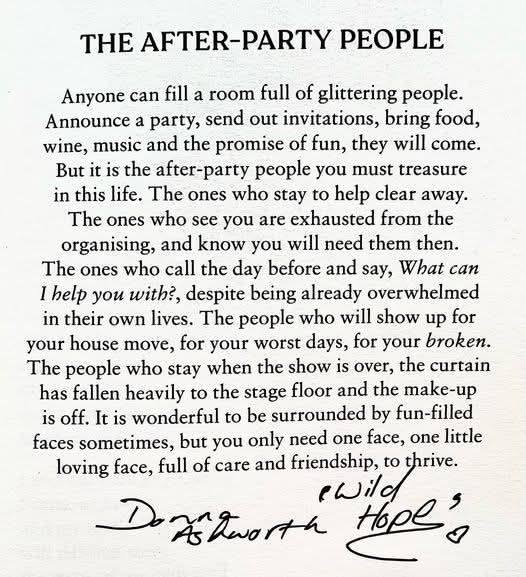 THE AFTER-PARTY PEOPLE
Anyone can fill a room full of glittering people.
Announce a party, send out invitations, bring food,
wine, music and the promise of fun, they will come.
But it is the after-party people you must treasure
in this life. The ones who stay to help clear away.
The ones who see you are exhausted from the
organising, and know you will need them then.
The ones who call the day before and say, What can
I help you with?, despite being already overwhelmed
in their own lives. The people who will show up for
your house move, for your worst days, for your broken.
The people who stay when the show is over, the curtain
has fallen heavily to the stage floor and the make-up
is off. It is wonderful to be surrounded by fun-filled
faces sometimes, but you only need one face, one little
loving face, full of care and friendship, to thrive.
Donna Ashworth
'Wild
Hope'